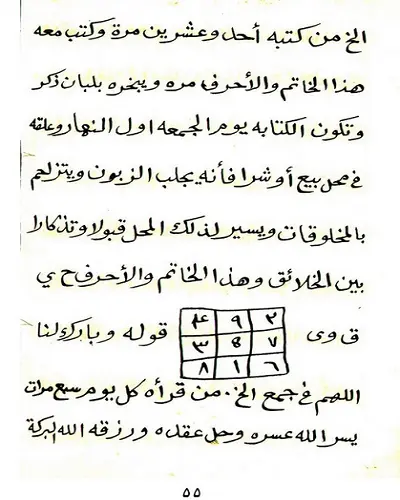 الخ من كتبه أحل وعشرين مرة وكتب معه
هذا الخاتم والأحرف مره ويبخره بلبان ذكر
وتكون الكتابه يوم الجمعه اول النهار وعلقه
في محل بيع أو شرا فأنه يجلب الزبون ويتزلحم
بالمخلوقات ويسير لذلك المحل قبولا وتذكارا
بين الخلائق وهذا الخاتم والأحرف ح ي
ق و ى
٢ ٩ ٤
٧ ٥ ٣
٦ ١ ٨
قوله وبارك لنا
اللهم في جمع الخ. من قرأه كل يوم سبع مرات
يسر الله عسره وحل عقله ورزقه الله البركة
٥٥